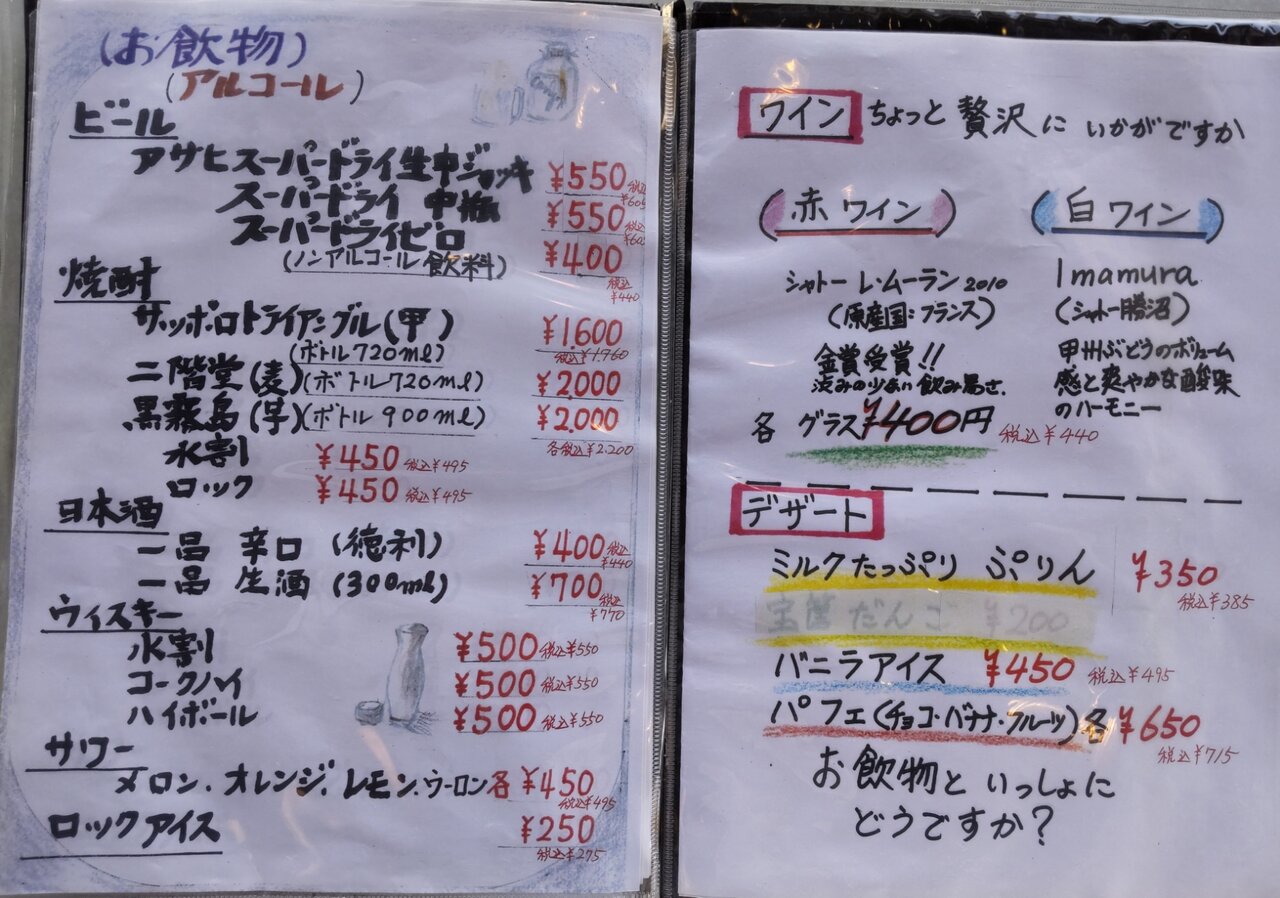 (お飲物)
(アルコール)
ビール
アサヒスーパードライ生中ジョッキ ¥550 税込¥605
スーパードライ 中瓶 ¥550 税込¥605
スーパードライゼロ ¥400
(ノンアルコール飲料) 税込¥440
焼酎
サッポロトライアングル(甲) ¥1,600
(ボトル720ml) 税込¥1,760
二階堂(麦)(ボトル720ml) ¥2,000
黒霧島(芋)(ボトル900ml) ¥2,000
各税込¥2,200
水割 ¥450 税込¥495
ロック ¥450 税込¥495
日本酒
一品 辛口 (徳利) ¥400 税込¥440
一品 生酒 (300ml) ¥700 税込¥770
ウィスキー
水割 ¥500 税込¥550
コークハイ ¥500 税込¥550
ハイボール ¥500 税込¥550
サワー
メロン.オレンジ.レモン.ウーロン各 ¥450
税込¥495
ロックアイス ¥250
税込¥275
ワイン ちょっと贅沢に いかがですか
(赤ワイン)
シャトー レ・ムーラン2010
(原産国:フランス)
金賞受賞!!
渋みの少ない飲み易さ.
(白ワイン)
Imamura
(シャトー勝沼)
甲州ぶどうのボリューム
感と爽やかな酸味
のハーモニー
各 グラス¥400円 税込¥440
デザート
ミルクたっぷり ぷりん ¥350
税込¥385
だんご ¥200
バニラアイス ¥450 税込¥495
パフェ(チョコ・バナナ・フルーツ)各¥650
税込¥715
お飲物といっしょに
どうですか?